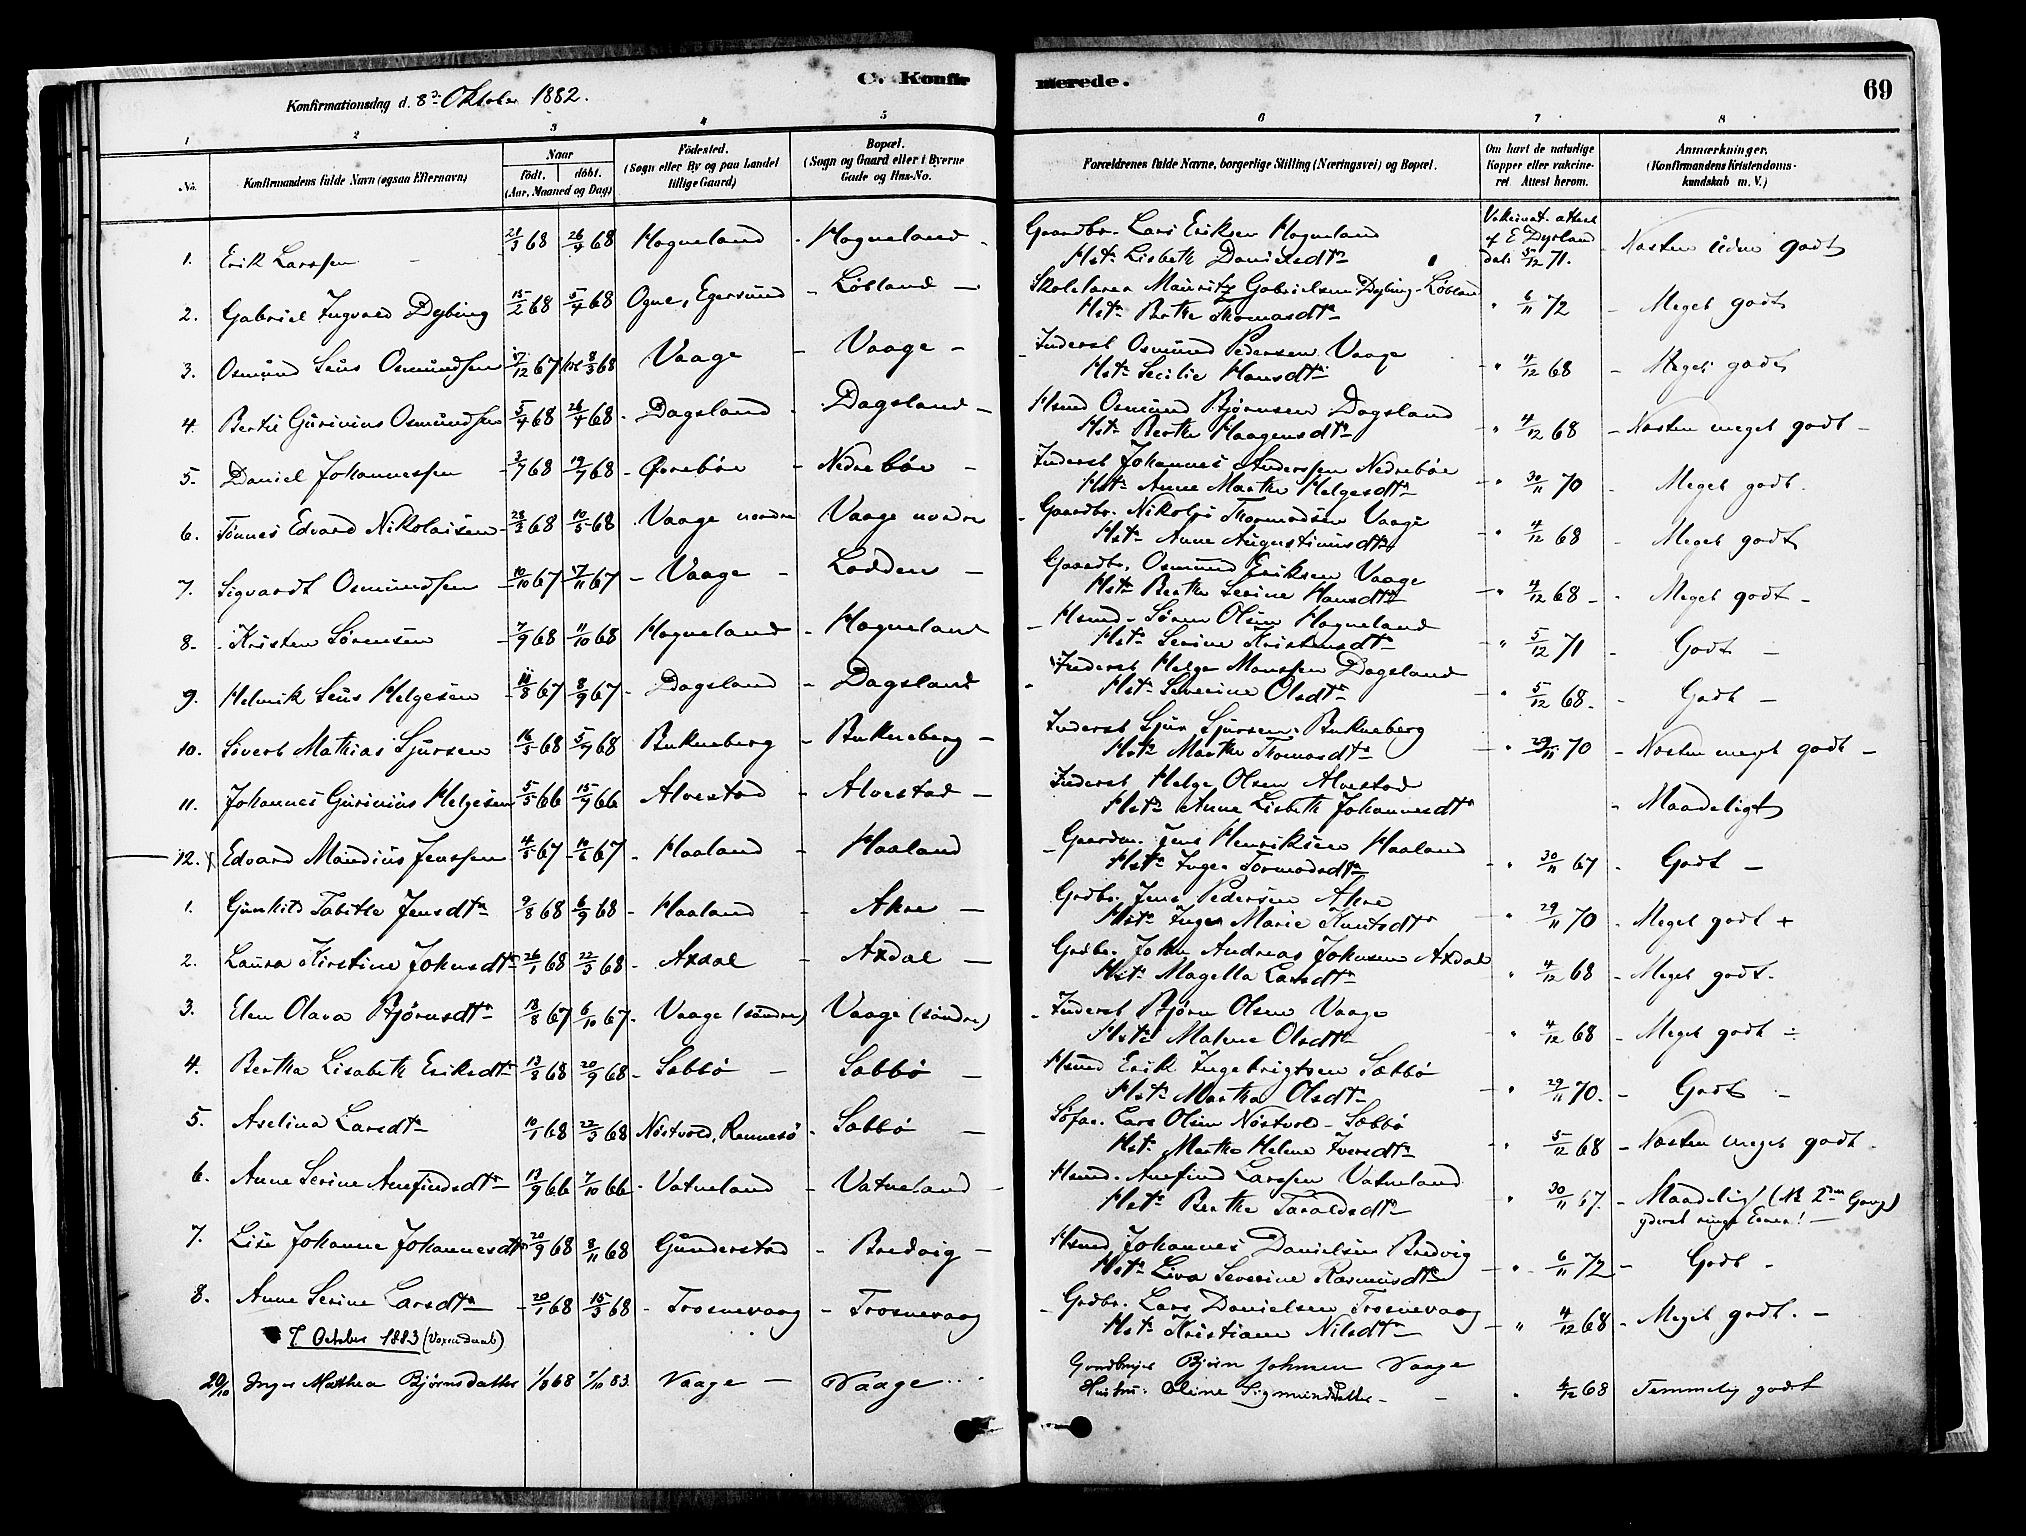 C. Konfirmerede.
69
Konfirmationsdag d. 8de Oktober 1882.
1 2 3 4 5 6 7 8
No.
Konfirmandens fulde Navn (ogsaa Efternavn)
Naar
født. døbt.
(Aar, Maaned og Dag)
Fødested.
(Sogn eller By og paa Landet
tillige Gaard)
Bopæl.
(Sogn og Gaard eller i Byerne
Gade og Hus-No.
Forældrenes fulde Navne, borgerlige Stilling (Næringsvei) og Bopæl.
Om havt de naturlige
Kopper eller vakcine-
ret. Attest herom.
Anmærkninger.
(Konfirmandens Kristendoms-
kundskab m. V.)
1. Erik Larssen 68 26/4 68 Hogneland Hogneland Gaardbr. Lars Eriksen Hogneland Vakcinat. attest
Hst. Lisbeth Danielsdtr af E Dyrland dat. 5/12 71. Næsten üdm godt
2. Gabriel Ingvald Dybing 15/2 68 5/4 68 Ogne, Egersund Løbland Skolelærer Mauritz Gabrielsen Dybing - Løbland
Hst. Berthe Thomasdtr " 6/11 72 Meget godt
3. Osmünd Seüs Osmündsen 17/12 67 8/3 68 Vaage Vaage Inderst Osmünd Pedersen Vaage
Hst. Secilie Hansdtr " 4/12 68 Meget godt
4. Bertil Gürinius Osmündsen 5/4 68 26/4 68 Dagsland Dagsland Hsmd Osmünd Bjørnsen Dagsland
Hst. Berthe Haagensdtr " 4/12 68 Næsten meget godt
5. Daniel Johannessen 3/7 68 19/7 68 Ørrebøe Nedrebøe Inderst Johannes Anderssen Nedrebøe
Hst. Anne Marthe Helgesdtr " 30/11 70 Meget godt.
6. Tønnes Edvard Nikolaisen 28/3 68 10/5 68 Vaage nordre Vaage nordre Gaardbr. Nikolai Thormodsen Vaage
Hst. Anne Augustinusdtr " 4/12 68 Meget godt
7. Sigvardt Osmündsen 10/10 67 17/11 67 Vaage Lodden Gaardbr. Osmünd Eriksen Vaage
Hst. Berthe Serine Hansdtr " 4/12 68 Meget godt
8. Kristen Sørensen 7/9 68 11/10 68 Hogneland Hogneland Hsmd. Søren Olsen Hogneland
Hst. Serine Kristensdtr " 5/12 71 Godt
9. Helmik Seüs Helgesen 67 8/9 67 Dagsland Dagsland Inderst Helge Monssen Dagsland
Hst. Severine Olsdtr " 5/12 68. Godt
10. Sivert Mathias Sjürsen 16/5 68 5/7 68 Bukneberg Bukneberg Inderst Sjur Sjursen Bukneberg
Hst. Marthe Thomasdtr " 29/11 70 Næsten meget godt
11. Johannes Gürinius Helgesen 5/5 66 15/7 66 Alvestad Alvestad Inderst Helge Olsen Alvestad
Hst. Anne Lisbeth Johannesdtr Maadeligt
12. Edvard Mandius Jenssen 4/5 67 10/6 67 Haaland Haaland Gaardm. Jens Henriksen Haaland
Hst. Inger Tormodsdtr " 30/11 67 Godt
1. Günhild Tabithe Jensdtr 9/8 68 6/9 68 Haaland Akre Grdbr. Jens Pedersen Akre
Hst. Inger Marie Knutsdtr " 29/11 70 Meget godt +
2. Laüra Kirstine Johnsdtr 26/1 68 22/3 68 Axdal Axdal Grdbr. John Andreas Johnsen Axdal
Hst. Magella Larsdtr " 4/12 68 Meget godt.
3. Elen Olava Bjørnsdtr 18/8 67 6/10 67 Vaage (søndre) Vaage (søndre) Inderst Bjørn Olsen Vaage
Hst. Malene Olsdtr " 4/12 68 Meget godt ÷
4. Bertha Lisabeth Eriksdtr 13/8 68 20/9 68 Søbbø Søbbø Hsmd Erik Ingebrigtsen Søbbø
Hst. Martha Olsdtr " 29/11 70. Godt
5. Avelina Larsdtr 10/1 68 22/3 68 Nøstvold, Rennesø Søbbø Lars Olsen Nøstvold - Søbbø
Hst. Marthe Helene Iversdtr " 5/12 68 Næsten meget godt.
6. Anne Serine Arnfindsdtr 13/9 66 7/10 66 Vatneland Vatneland Hsmd. Arnfind Larssen Vatneland
Hst. Berthe Taraldsdtr " 30/11 67. Maadeligt (Nb. 2den Gang)
yderst ringe Evner!
7. Lise Johanne Johannesdtr 20/9 68 8/11 68 Günderstad Bredvig Hsmd Johannes Danielsen Bredvig
Hst. Liva Severine Rasmusdtr " 6/11 72 Godt
8. Anne Serine Larsdtr 20/1 68 15/3 68 Trosnevaag Trosnevaag Grdbr. Lars Danielsen Trosnevaag
Hst. Kristiane Nilsdtr " 4/12 68 Meget godt.
7. October 1883 (Voxendaab)
20/10 Inger Mathea Bjørnsdatter 68 7/10 83. Vaage Vaage Gaardbruger Bjørn Johnsen Vaage
Hustru. Oline Sigmundsdatter " 4/12 68 Temmelig godt